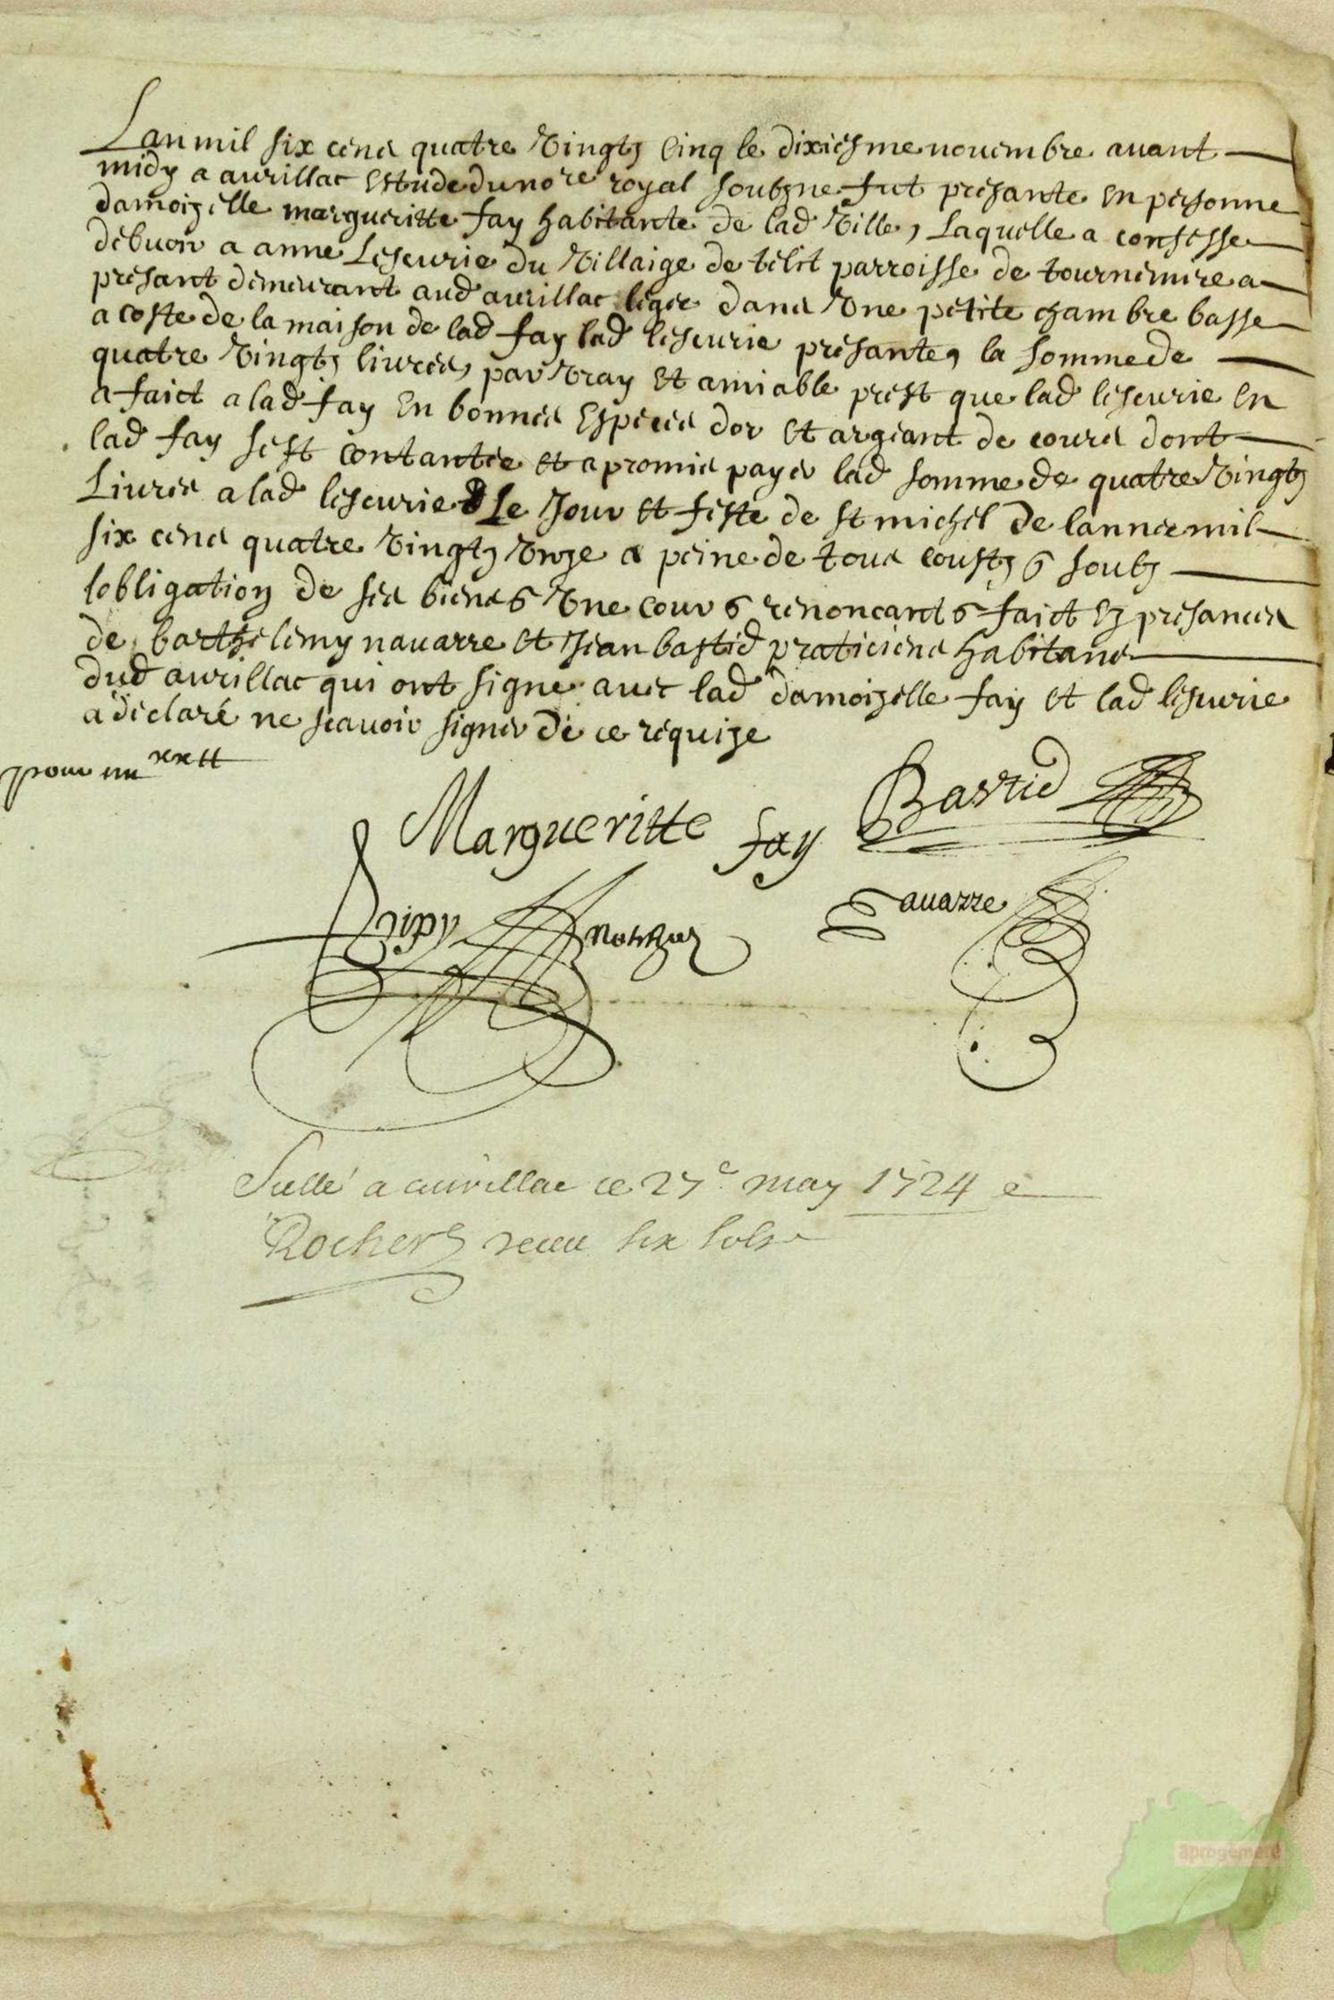 Lan mil six cens quatre Vingtz Cinq le dixiesme novembre avant
midy a aurillac Estude du nore royal soubzne fut presante en personne
damoizelle margueritte fay habitante de lad Ville, Laquelle a confesse
debvoir a anne Lescurie du Villaige de telit parroisse de tournemire a
presant demeurant aud aurillac legee dans Une petite chambre basse
a coste de la maison de lad fay lad lescurie presante, la somme de
quatre Vingtz livres, par Vray Et amiable prest que lad lescurie en
a faict a lad fay En bonnes Especes dor Et argeant de cours dont
lad fay sest contantee et a promis payer lad somme de quatre Vingtz
Livres a lad lescurie Le Jour Et feste de st michel de lannee mil
six cens quatre Vingtz Unze a peine de tous coustz & soubz
lobligation de ses biens & Une cour & renoncant & faict Ez presances
de barthelemy navarre et Jean bastid praticiens habitans
dud aurillac qui ont signe avec lad damoizelle fay et lad lescurie
a declaré ne scavoir signer de ce requize
pour
Margueritte fay
Bastid
Navarre
notaire
Sellé a aurillac ce 27e may 1724
Rochery receu six sols
aprogemere